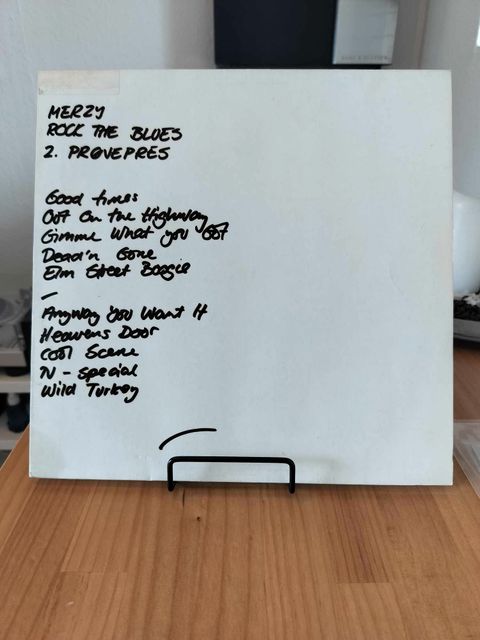 MERZY
ROCK THE BLUES
2. PRØVEPRES
Good times
Out On the Highway
Gimme What you Got
Dead'n Gone
Elm Street Boogie
—
Anyway You Want It
Heavens Door
Cool Scene
N - special
Wild Turkey